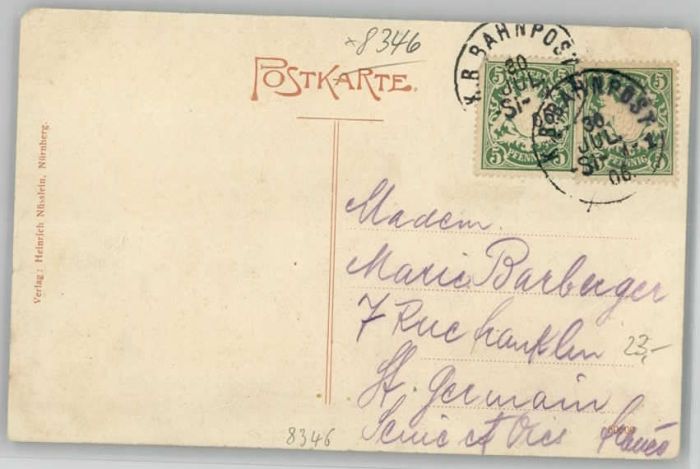 *8346
POSTKARTE.
K.B. BAHNPOST
30
JUL
06
5 5
PFENNIG
5 5
K.B. BAHNPOST
30
JUL
06
5
PFENNIG
5
Verlag: Heinrich Nüsslein, Nürnberg.
Madem.
Marie Barberger
7 Rue franklin
23,-
St. Germain
Seine et Oies
8346